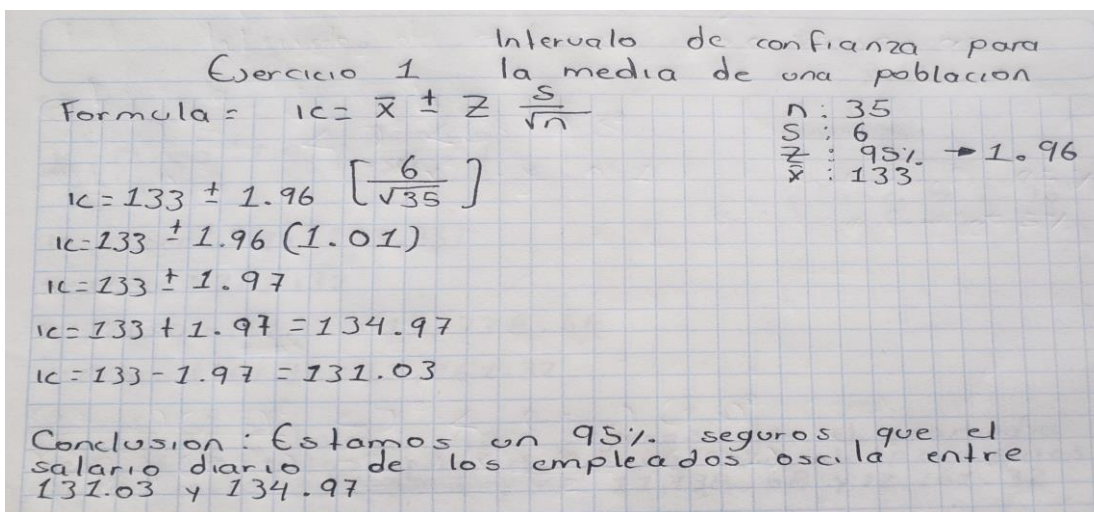 Intervalo de confianza para
Ejercicio 1 la media de una poblacion
Formula = IC = x̄ ± Z S/√n
n : 35
S : 6
Z : 95% → 1.96
x̄ : 133
IC = 133 ± 1.96 [6/√35]
IC = 133 ± 1.96 (1.01)
IC = 133 ± 1.97
IC = 133 + 1.97 = 134.97
IC = 133 - 1.97 = 131.03
Conclusion : Estamos un 95% seguros que el
salario diario de los empleados oscila entre
131.03 y 134.97